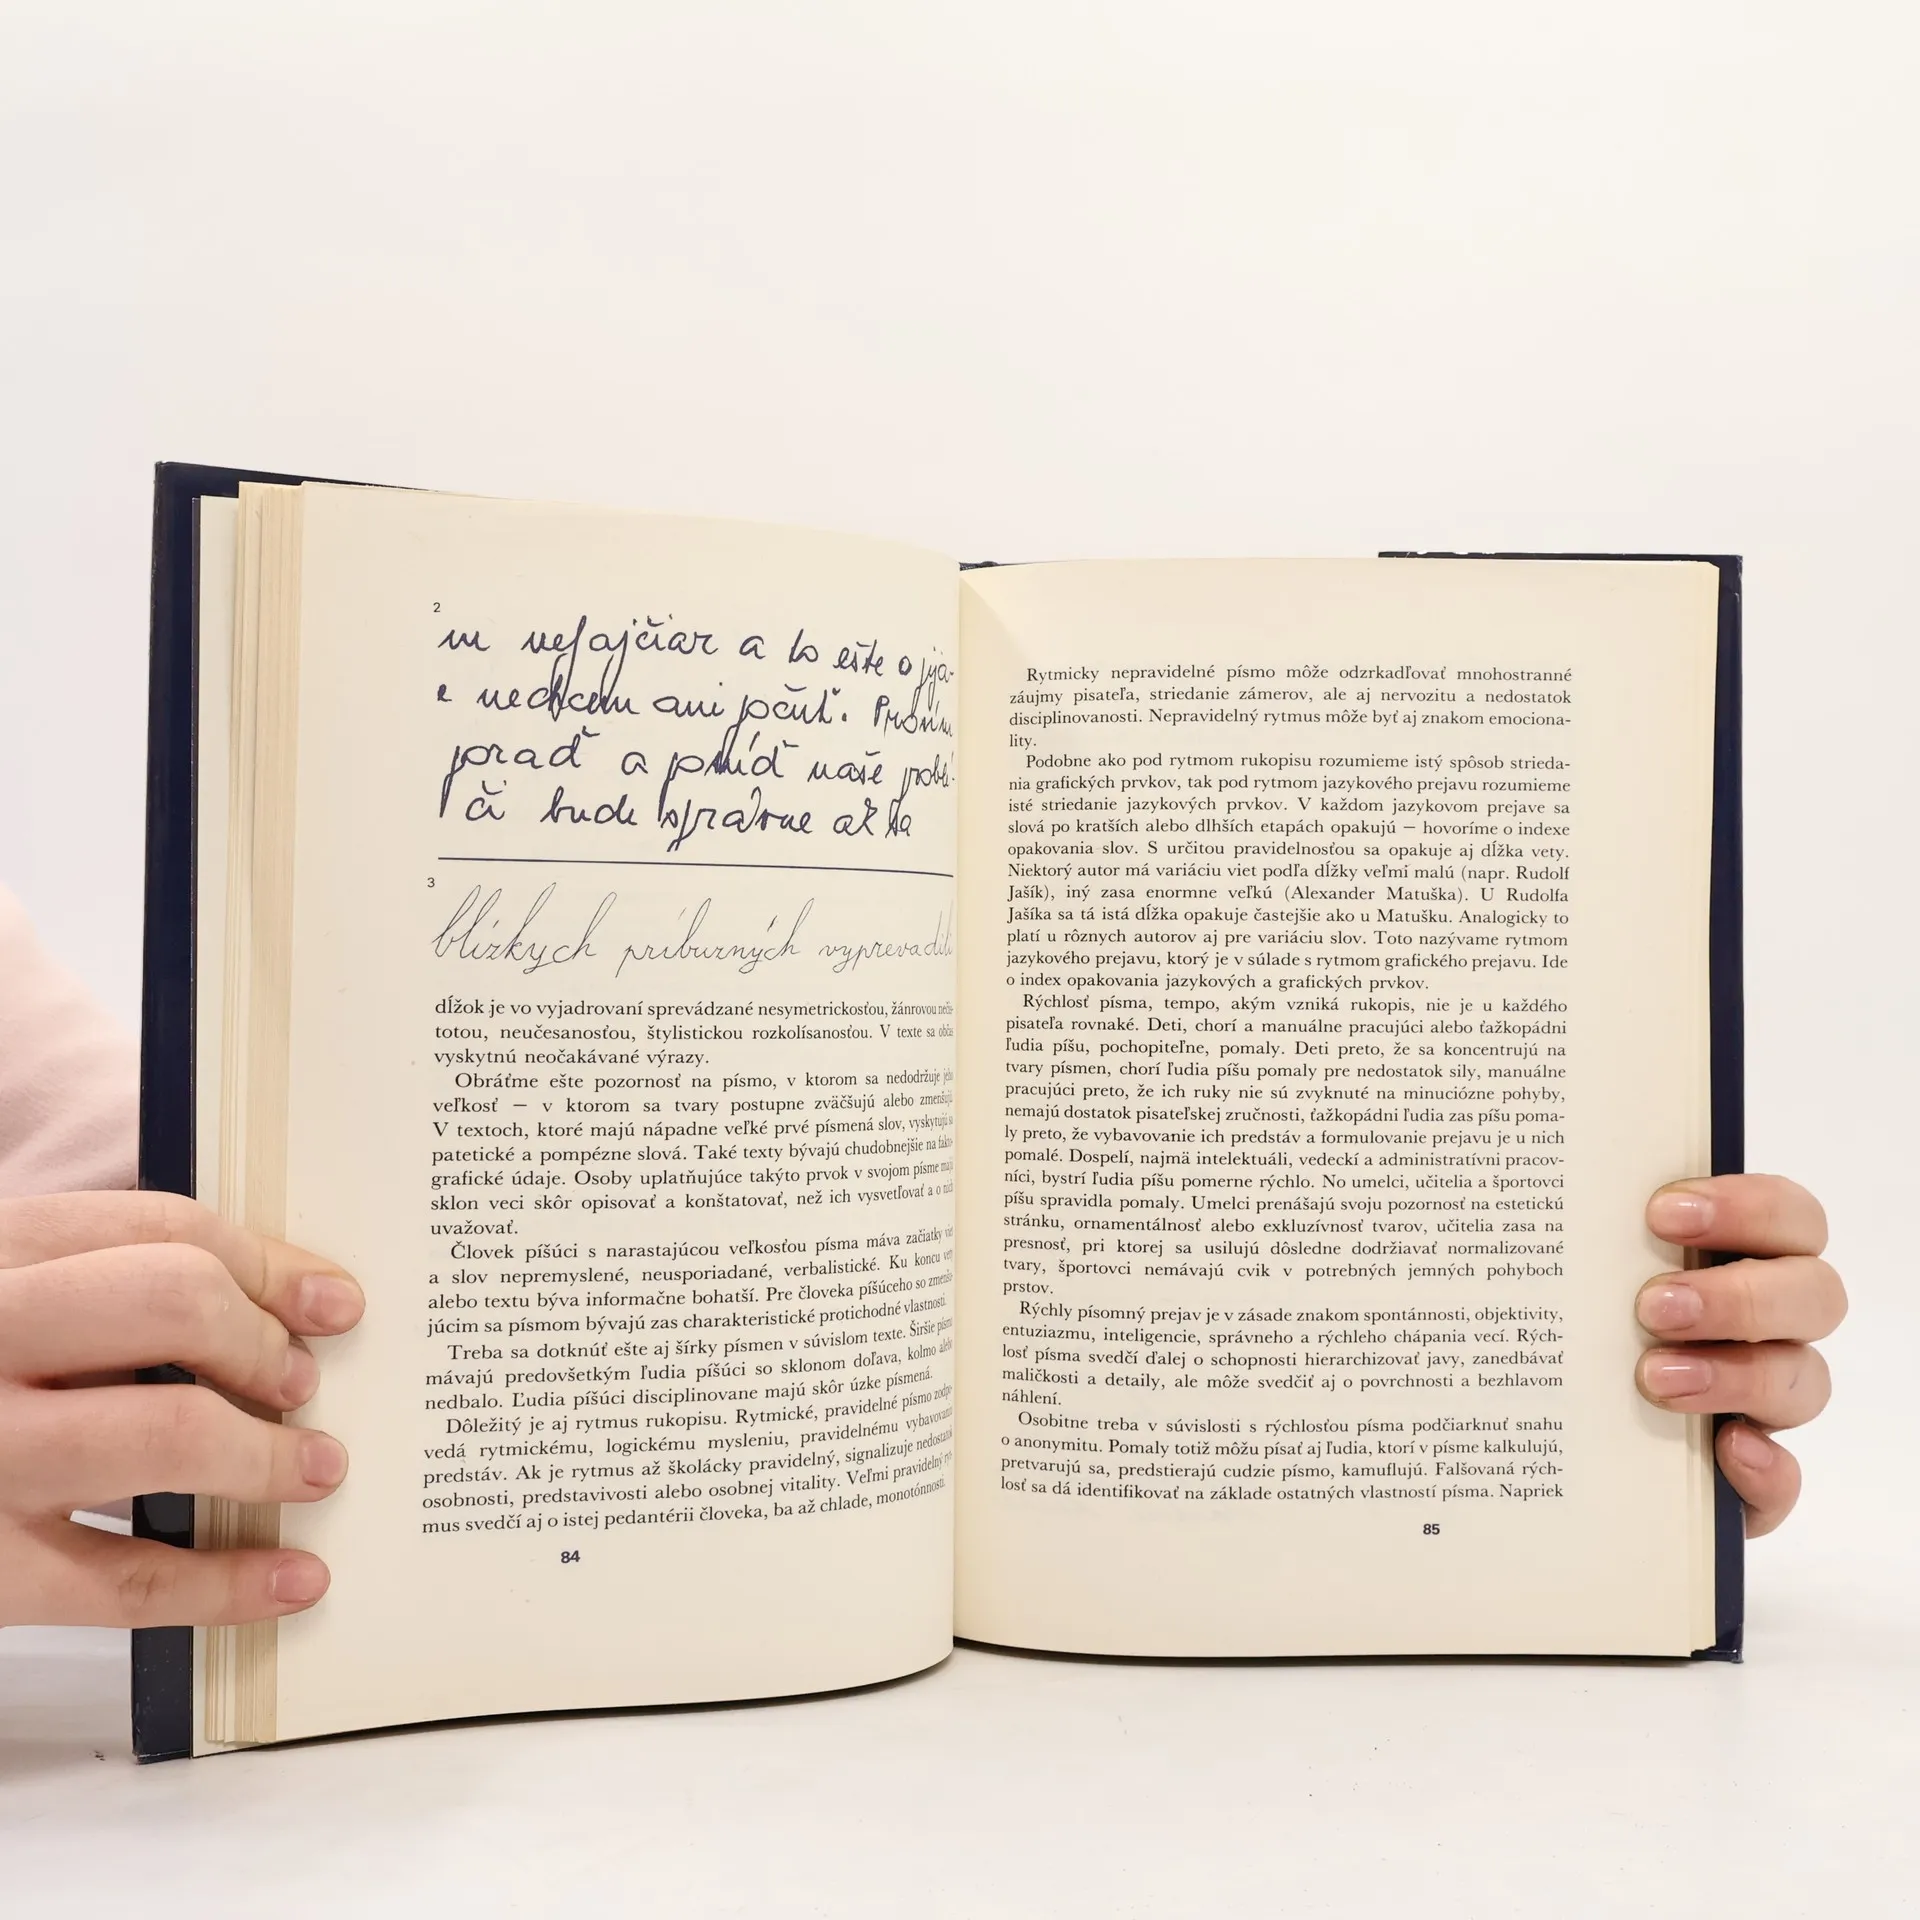 2
m nefajčiar a to ešte o
e nechcem ani počuť. Prosím
poraď a príď naše
či bude správne ak sa
3
blízkych príbuzných vyprevadili
dĺžok je vo vyjadrovaní sprevádzané nesymetrickosťou, žánrovou nečis-
totou, neučesanosťou, štylistickou rozkolísanosťou. V texte sa občas
vyskytnú neočakávané výrazy.
Obráťme ešte pozornosť na písmo, v ktorom sa nedodržuje jeho
veľkosť — v ktorom sa tvary postupne zväčšujú alebo zmenšujú.
V textoch, ktoré majú nápadne veľké prvé písmená slov, vyskytujú sa
patetické a pompézne slová. Také texty bývajú chudobnejšie na fakto-
grafické údaje. Osoby uplatňujúce takýto prvok v svojom písme majú
sklon veci skôr opisovať a konštatovať, než ich vysvetľovať a o nich
uvažovať.
Človek píšúci s narastajúcou veľkosťou písma máva začiatky viet
a slov nepremyslené, neusporiadané, verbalistické. Ku koncu vety
alebo textu býva informačne bohatší. Pre človeka píšúceho so zmenšu-
júcim sa písmom bývajú zas charakteristické protichodné vlastnosti.
Treba sa dotknúť ešte aj šírky písmen v súvislom texte. Širšie písmo
mávajú predovšetkým ľudia píšúci so sklonom doľava, kolmo alebo
nedbalo. Ľudia píšúci disciplinovane majú skôr úzke písmená.
Dôležitý je aj rytmus rukopisu. Rytmické, pravidelné písmo zodpo-
vedá rytmickému, logickému mysleniu, pravidelnému vybavovaniu
predstáv. Ak je rytmus až školácky pravidelný, signalizuje nedostatok
osobnosti, predstavivosti alebo osobnej vitality. Veľmi pravidelný ryt-
mus svedčí aj o istej pedantérii človeka, ba až chlade, monotónnosti.
84
Rytmicky nepravidelné písmo môže odzrkadľovať mnohostranné
záujmy pisateľa, striedanie zámerov, ale aj nervozitu a nedostatok
disciplinovanosti. Nepravidelný rytmus môže byť aj znakom emociona-
lity.
Podobne ako pod rytmom rukopisu rozumieme istý spôsob strieda-
nia grafických prvkov, tak pod rytmom jazykového prejavu rozumieme
isté striedanie jazykových prvkov. V každom jazykovom prejave sa
slová po kratších alebo dlhších etapách opakujú — hovoríme o indexe
opakovania slov. S určitou pravidelnosťou sa opakuje aj dĺžka vety.
Niektorý autor má variáciu viet podľa dĺžky veľmi malú (napr. Rudolf
Jašík), iný zasa enormne veľkú (Alexander Matuška). U Rudolfa
Jašíka sa tá istá dĺžka opakuje častejšie ako u Matušku. Analogicky to
platí u rôznych autorov aj pre variáciu slov. Toto nazývame rytmom
jazykového prejavu, ktorý je v súlade s rytmom grafického prejavu. Ide
o index opakovania jazykových a grafických prvkov.
Rýchlosť písma, tempo, akým vzniká rukopis, nie je u každého
pisateľa rovnaké. Deti, chorí a manuálne pracujúci alebo ťažkopádni
ľudia píšu, pochopiteľne, pomaly. Deti preto, že sa koncentrujú na
tvary písmen, chorí ľudia píšu pomaly pre nedostatok sily, manuálne
pracujúci preto, že ich ruky nie sú zvyknuté na minuciózne pohyby,
nemajú dostatok pisateľskej zručnosti, ťažkopádni ľudia zas píšu poma-
ly preto, že vybavovanie ich predstáv a formulovanie prejavu je u nich
pomalé. Dospelí, najmä intelektuáli, vedeckí a administratívni pracov-
níci, bystrí ľudia píšu pomerne rýchlo. No umelci, učitelia a športovci
píšu spravidla pomaly. Umelci prenášajú svoju pozornosť na estetickú
stránku, ornamentálnosť alebo exkluzívnosť tvarov, učitelia zasa na
presnosť, pri ktorej sa usilujú dôsledne dodržiavať normalizované
tvary, športovci nemávajú cvik v potrebných jemných pohyboch
prstov.
Rýchly písomný prejav je v zásade znakom spontánnosti, objektivity,
entuziazmu, inteligencie, správneho a rýchleho chápania vecí. Rých-
losť písma svedčí ďalej o schopnosti hierarchizovať javy, zanedbávať
maličkosti a detaily, ale môže svedčiť aj o povrchnosti a bezhlavom
náhlení.
Osobitne treba v súvislosti s rýchlosťou písma podčiarknuť snahu
o anonymitu. Pomaly totiž môžu písať aj ľudia, ktorí v písme kalkulujú,
pretvarujú sa, predstierajú cudzie písmo, kamuflujú. Falšovaná rých-
losť sa dá identifikovať na základe ostatných vlastností písma. Napriek
85